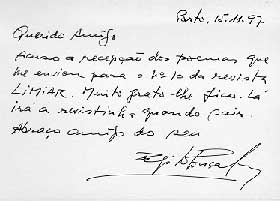 Porto, 15.11.97
Querido Amigo
Acuso a recepção dos poemas que
me enviou para o nº 10 da revista
LIMIAR. Muito grato lhe fico. Lá
irá a revistinha quando sair.
Abraço amigo do seu